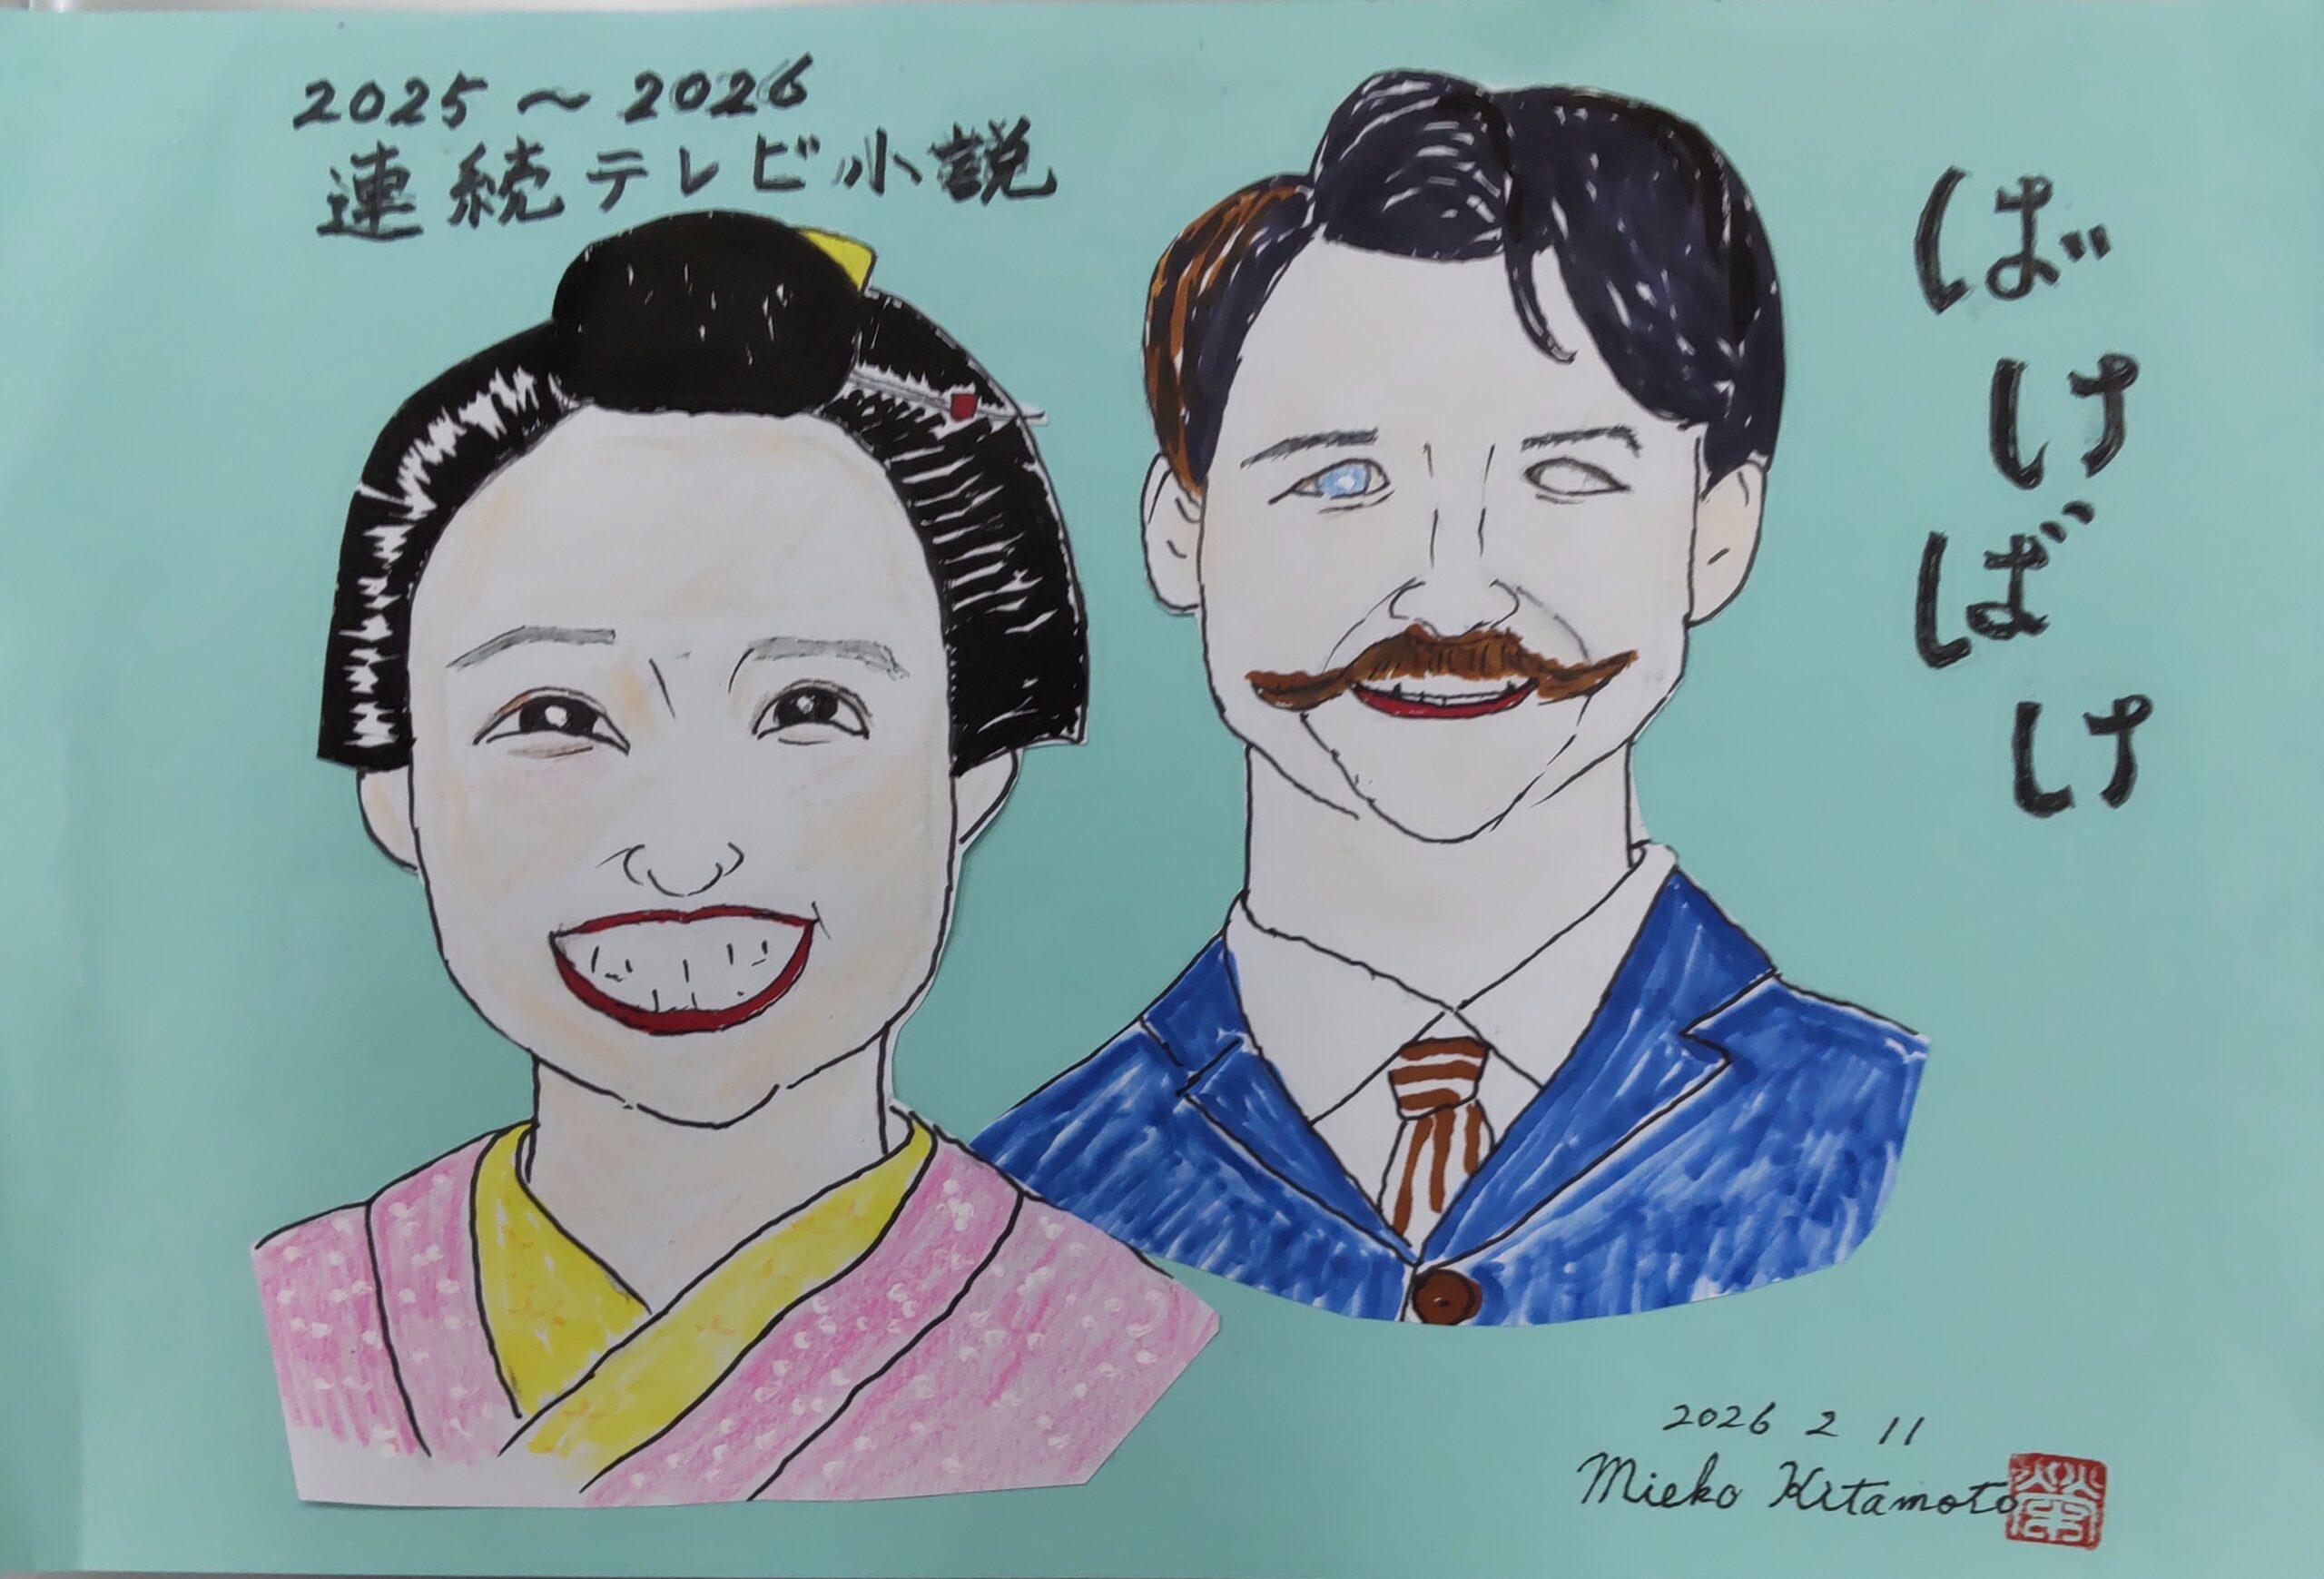 2025～2026
連続テレビ小説
ばけばけ
2026 2 11
Mieko Kitamoto